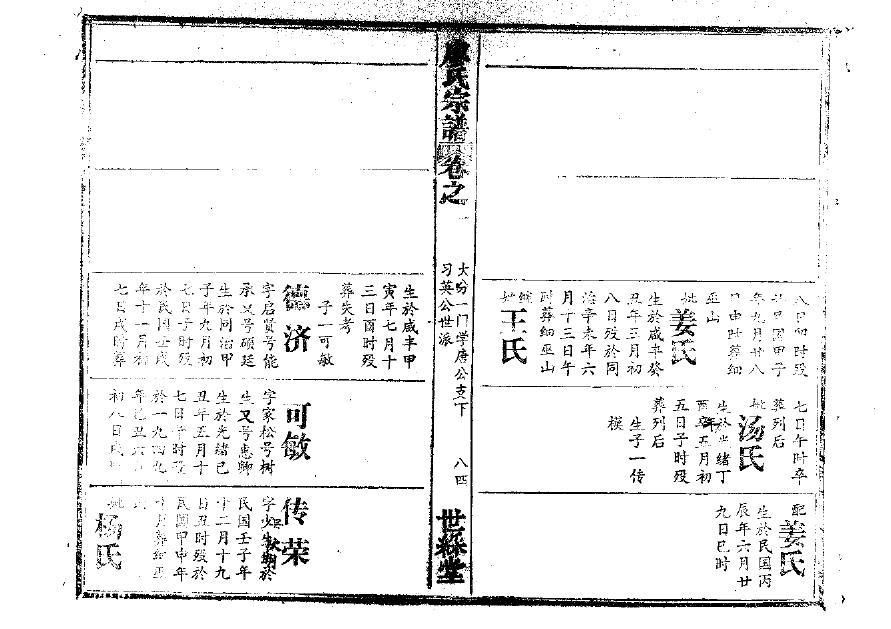 八日卯时殁
民国甲子
年九月廿八
日申时葬细
巫山
妣姜氏
生於咸丰癸
丑年三月初
八日殁於同
治辛未年六
月十三日午
时葬细巫山
继妣王氏
七日午时卒
葬列后
妣汤氏
生於光绪丁
酉年五月初
五日子时殁
葬列后
生子一传
模
配姜氏
生於民国丙
辰年六月廿
九日巳时
廖氏宗谱
卷之一
大吩一门学唐公支下
习英公世派
八四
世綵堂
生於咸丰甲
寅年七月十
三日酉时殁
葬失考
子一可敏
德济
字启贤号能
承又号硕廷
生於同治甲
子年九月初
七日子时殁
於民国壬戌
年十一月初
七日戌时葬
可敏
字家松号树
生又号惠卿
生於光绪己
丑年五月十
七日子时殁
於一九四九
年己丑六月
初八日戌时
传荣
字少生於
民国壬子年
十二月十九
日丑时殁於
民国甲申年
十月葬细巫
山
妣杨氏